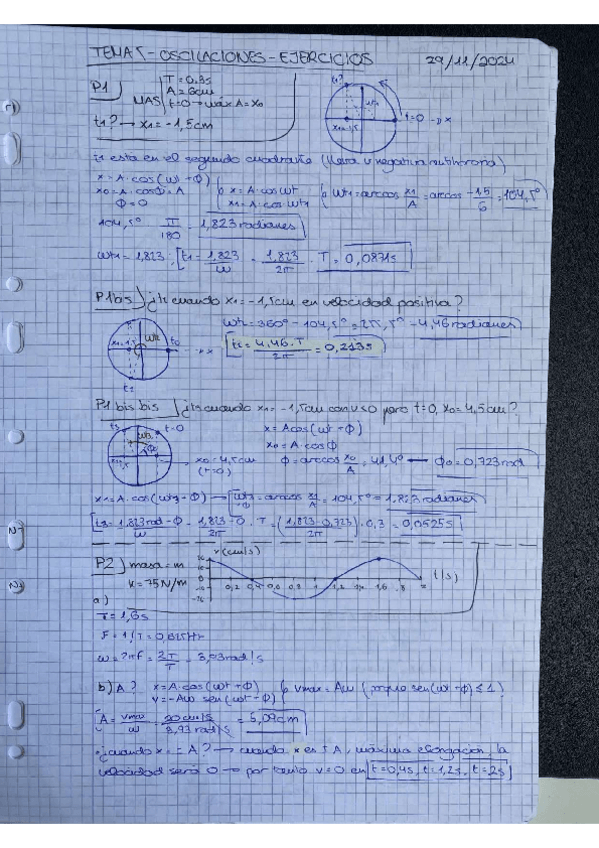 TEMA 5 - OSCILACIONES - EJERCICIOS 29/11/2024
P1) MAS T = 0,3s
A = 6cm
t=0 → máx A = x0
t1? → x1 = -1,5cm
t1?
t=0
t1 está en el segundo cuadrante
x = A·cos(ωt+ϕ)
x0 = A·cosϕ = A
ϕ = 0
x = A·cosωt
x1 = A·cosωt1
ωt1 = arccos x1/A = arccos -1,5/6 = 104,5°
104,5° π/180 = 1,823 radianes
ωt1 = 1,823 ; t1 = 1,823/ω = 1,823/2π · T = 0,0871s
P1bis) ¿t2 cuando x1 = -1,5cm en velocidad positiva?
ωt2 = 360° - 104,5° = 255,5° → 4,46 radianes
t2 = 4,46·T/2π = 0,213s
P1 bis bis) ¿t3 cuando x1 = -1,5cm con v<0 pero t=0, x0 = 4,5cm?
x = A cos(ωt+ϕ)
x0 = A·cosϕ
x0 = 4,5cm
(t=0)
ϕ = arccos x0/A = 41,4° → ϕ0 = 0,723 rad
x1 = A·cos(ωt3+ϕ) → ωt3+ϕ = arccos x1/A = 104,5° = 1,823 radianes
t3 = 1,823rad - ϕ/ω = 1,823-ϕ/2π · T = (1,823-0,723/2π) · 0,3 = 0,0525s
P2) masa = m
k = 75N/m
v(cm/s)
t(s)
a)
T = 1,6s
F = 1/T = 0,625Hz
ω = 2πf = 2π/T = 3,93rad/s
b) A? x = A·cos(ωt+ϕ)
v = -Aω sen(ωt+ϕ)
vmax = Aω (porque sen(ωt+ϕ) ≤ 1)
A = vmax/ω = 20cm/s/3,93rad/s = 5,09cm
¿cuando x = -A? → cuando x es ±A, máxima elongación, la
velocidad será 0 → por tanto v=0 en t=0,4s, t=1,2s, t=2s